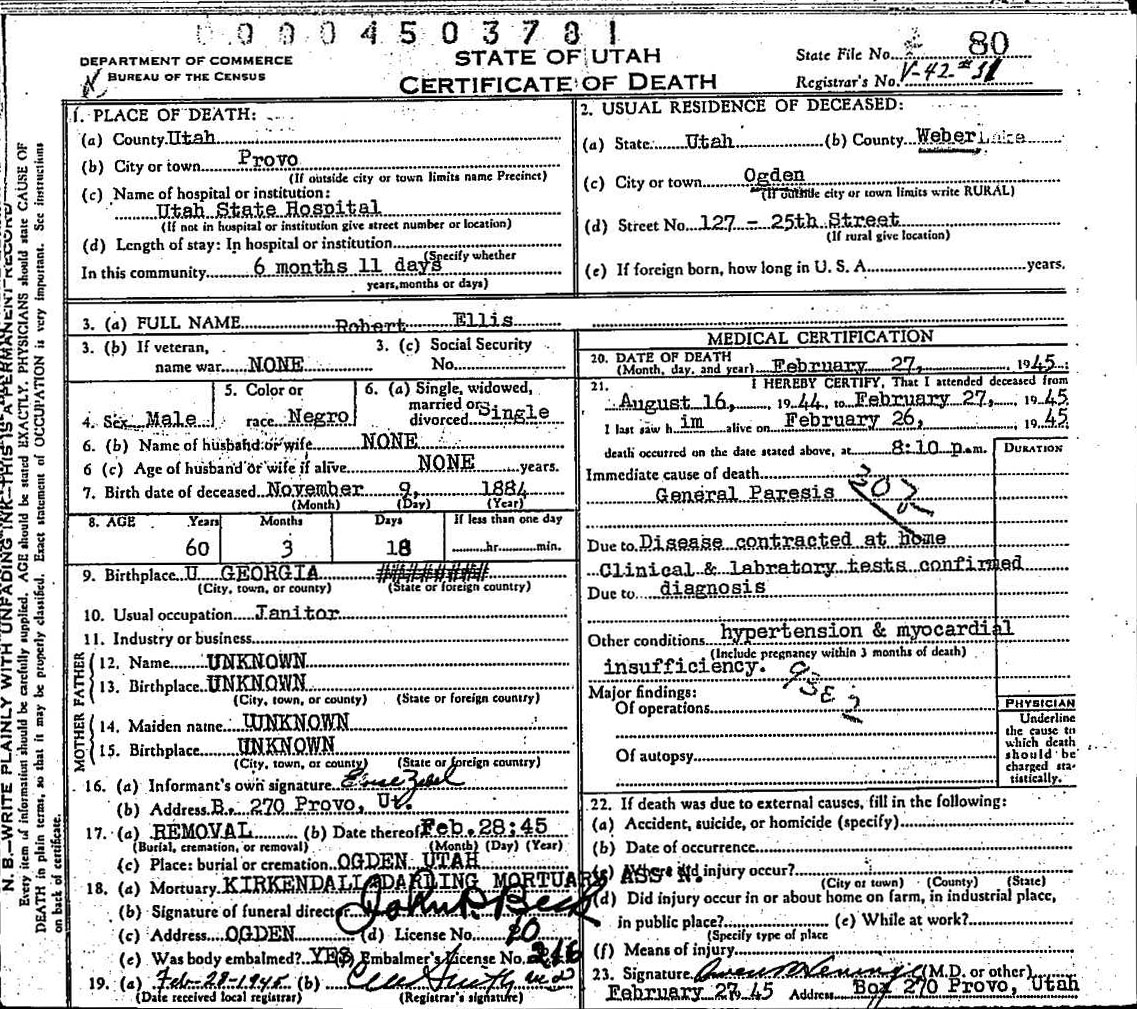 00004503781
DEPARTMENT OF COMMERCE
BUREAU OF THE CENSUS
STATE OF UTAH
CERTIFICATE OF DEATH
State File No. 80
Registrar's No. V-42-#31
N. B.—WRITE PLAINLY WITH UNFADING INK—THIS IS A PERMANENT RECORD
Every item of information should be carefully supplied. AGE should be stated EXACTLY. PHYSICIANS should state CAUSE OF
DEATH in plain terms, so that it may be properly classified. Exact statement of OCCUPATION is very important. See instructions
on back of certificate.
1. PLACE OF DEATH:
(a) County Utah
(b) City or town Provo
(If outside city or town limits name Precinct)
(c) Name of hospital or institution:
Utah State Hospital
(If not in hospital or institution give street number or location)
(d) Length of stay: In hospital or institution
(Specify whether
In this community 6 months 11 days
years, months or days)
2. USUAL RESIDENCE OF DECEASED:
(a) State Utah (b) County Weber
(c) City or town Ogden
(If outside city or town limits write RURAL)
(d) Street No. 127 - 25th Street
(If rural give location)
(e) If foreign born, how long in U. S. A. years.
3. (a) FULL NAME Robert Ellis
3. (b) If veteran, 3. (c) Social Security
name war NONE No.
4. Sex Male
5. Color or
race Negro
6. (a) Single, widowed,
married or
divorced Single
6. (b) Name of husband or wife NONE
6 (c) Age of husband or wife if alive NONE years.
7. Birth date of deceased November 9, 1884
(Month) (Day) (Year)
8. AGE Years Months Days If less than one day
60 3 18 hr. min.
9. Birthplace U GEORGIA #########
(City, town, or county) (State or foreign country)
10. Usual occupation Janitor
11. Industry or business
FATHER
12. Name UNKNOWN
13. Birthplace UNKNOWN
(City, town, or county) (State or foreign country)
MOTHER
14. Maiden name UUNKNOWN
15. Birthplace UNKNOWN
(City, town, or county) (State or foreign country)
16. (a) Informant's own signature
(b) Address B. 270 Provo, Ut.
17. (a) REMOVAL (b) Date thereof Feb. 28:45
(Burial, cremation, or removal) (Month) (Day) (Year)
(c) Place: burial or cremation OGDEN UTAH
18. (a) Mortuary KIRKENDALL DARLING MORTUARY ASS'N.
(b) Signature of funeral director John P. Beck
(c) Address OGDEN (d) License No. 20
(e) Was body embalmed? YES (f) Embalmer's License No. 216
19. (a) Feb-28-1945 (b)
(Date received local registrar) (Registrar's signature)
MEDICAL CERTIFICATION
20. DATE OF DEATH
(Month, day, and year) February 27, 1945
21. I HEREBY CERTIFY, That I attended deceased from
August 16, 1944, to February 27, 1945
I last saw him alive on February 26, 1945
death occurred on the date stated above, at 8:10 p.m.
DURATION
Immediate cause of death
General Paresis
Due to Disease contracted at home
Clinical & labratory tests confirmed
Due to diagnosis
Other conditions hypertension & myocardial
(Include pregnancy within 3 months of death)
insufficiency.
Major findings:
Of operations
Of autopsy
PHYSICIAN
Underline
the cause to
which death
should be
charged sta-
tistically.
22. If death was due to external causes, fill in the following:
(a) Accident, suicide, or homicide (specify)
(b) Date of occurrence
(c) Where did injury occur?
(City or town) (County) (State)
(d) Did injury occur in or about home on farm, in industrial place,
in public place? (e) While at work?
(Specify type of place
(f) Means of injury
23. Signature (M.D. or other)
February 27, 45 Address Box 270 Provo, Utah